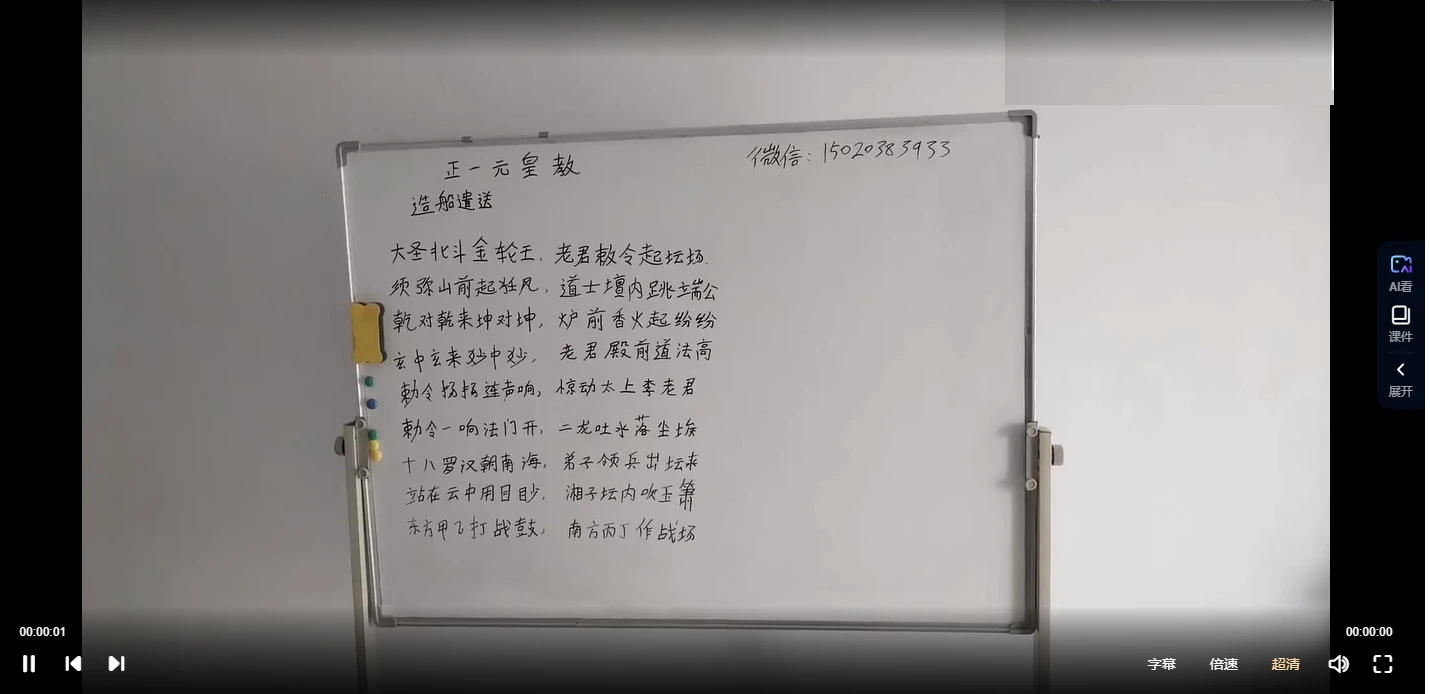 正一元皇教
微信：15020383933
造船遣送
大圣北斗金轮王，老君敕令起坛场.
须弥山前起狂风，道士壇内跳端公
乾对乾来坤对坤，炉前香火起纷纷
玄中玄来妙中妙，老君殿前道法高
勅令扬扬连声响，惊动太上李老君
勅令一响法门开，二龙吐水落尘埃
十八罗汉朝南海，弟子领兵出坛来
站在云中用目眇，湘子坛内吹玉箫
东方甲乙打战鼓，南方丙丁作战场
AI看
课件
展开
00:00:01
00:00:00
字幕
倍速
超清